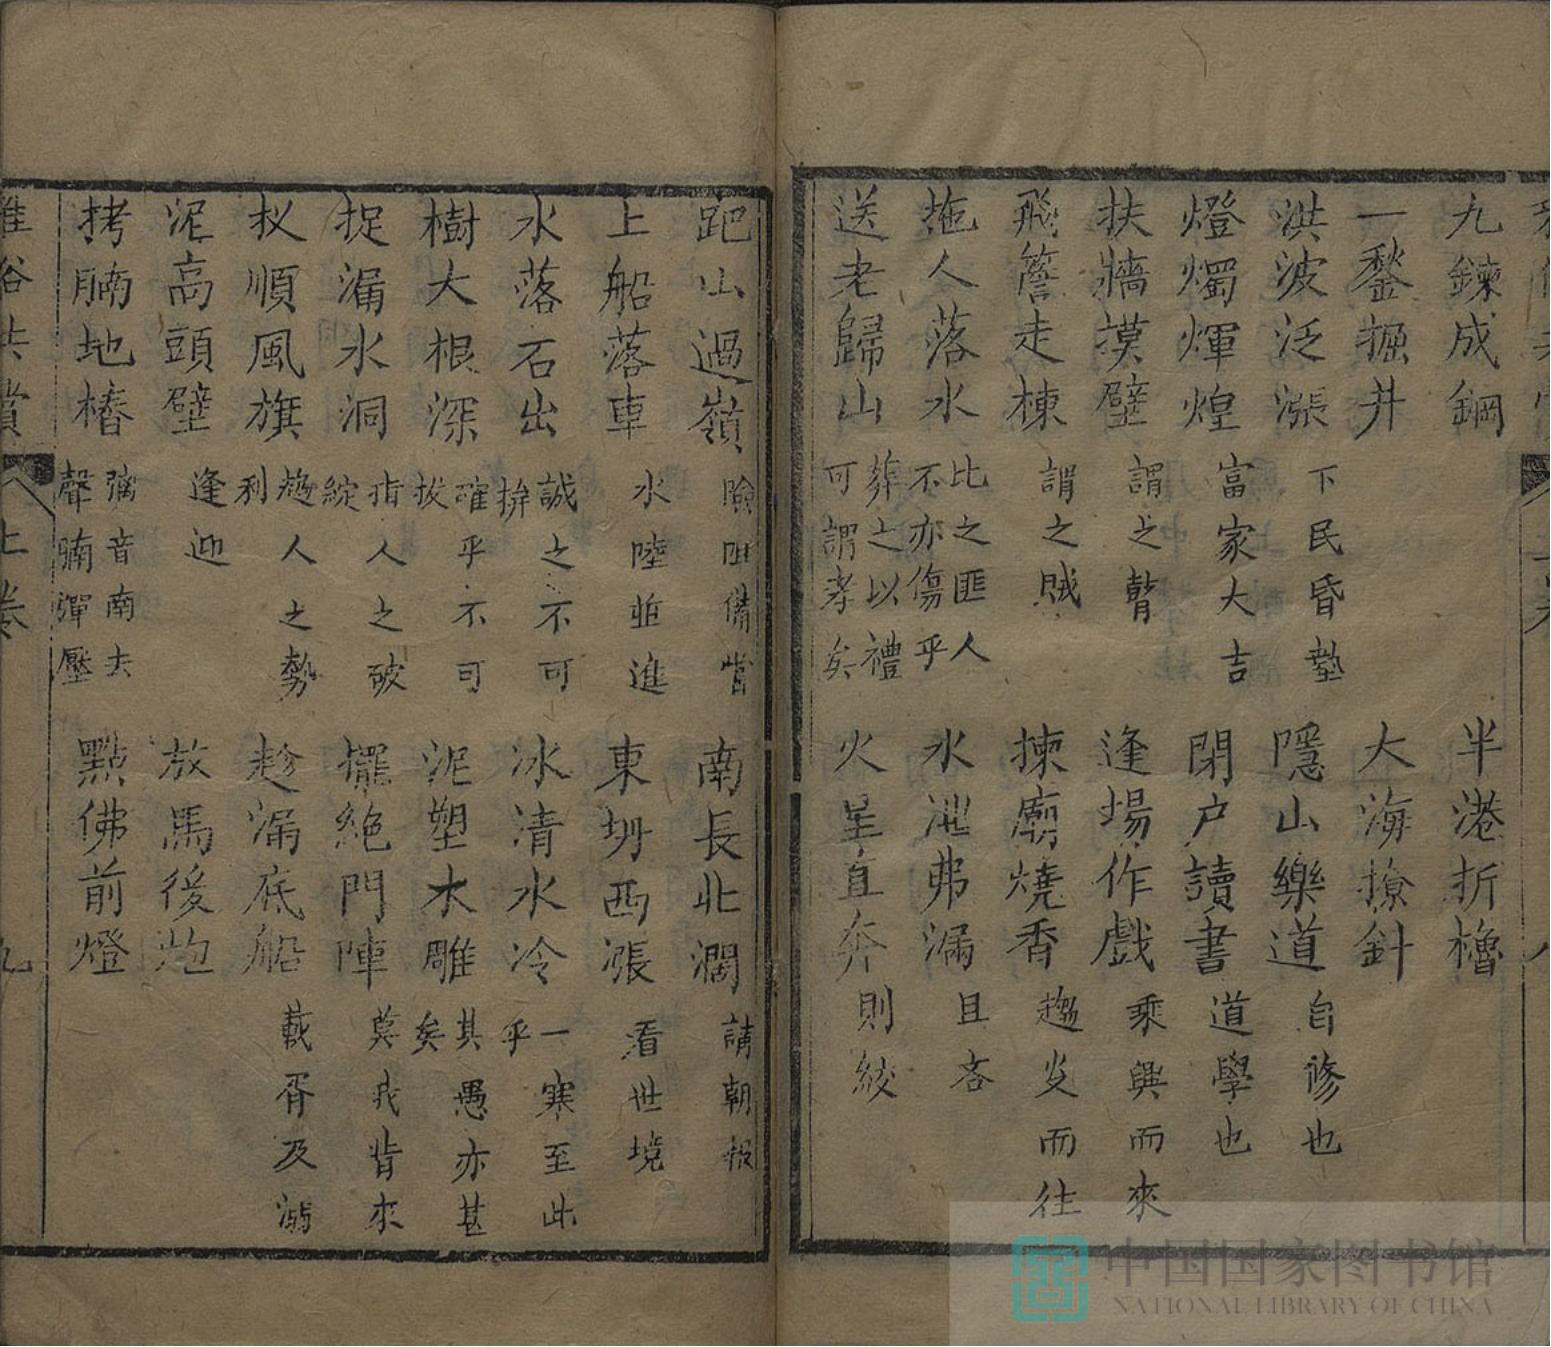 九鍊成鋼 半港折櫓
一鍫掘井 大海撩針
洪波泛漲 下民昏墊 隱山樂道 自修也
燈燭輝煌 富家大吉 閉户讀書 道學也
扶牆摸壁 謂之瞽 逢場作戲 乘興而來
飛簷走棟 謂之賊 揀廟燒香 趨炎而往
拖人落水 比之匪人不亦傷乎 水泄弗漏 且吝
送老歸山 葬之以禮可謂孝矣 火星直奔 則絞
跁山過嶺 險阻備嘗 南長北濶 請朝報
上船落車 水陸並進 東坍西漲 看世境
水落石出 誠之不可揜 冰清水冷 一寒至此乎
樹大根深 確乎不可拔 泥塑木雕 其愚亦甚矣
捉漏水洞 指人之破綻 擺絶門陣 莫我肯來
扠順風旗 趨人之勢利 趁漏底船 載胥及溺
泥高頭壁 逢迎 放馬後炮
拷腩地樁 璃音南去聲腩彈壓 點佛前燈
雅俗共賞 上卷 九
中国国家图书馆
NATIONAL LIBRARY OF CHINA